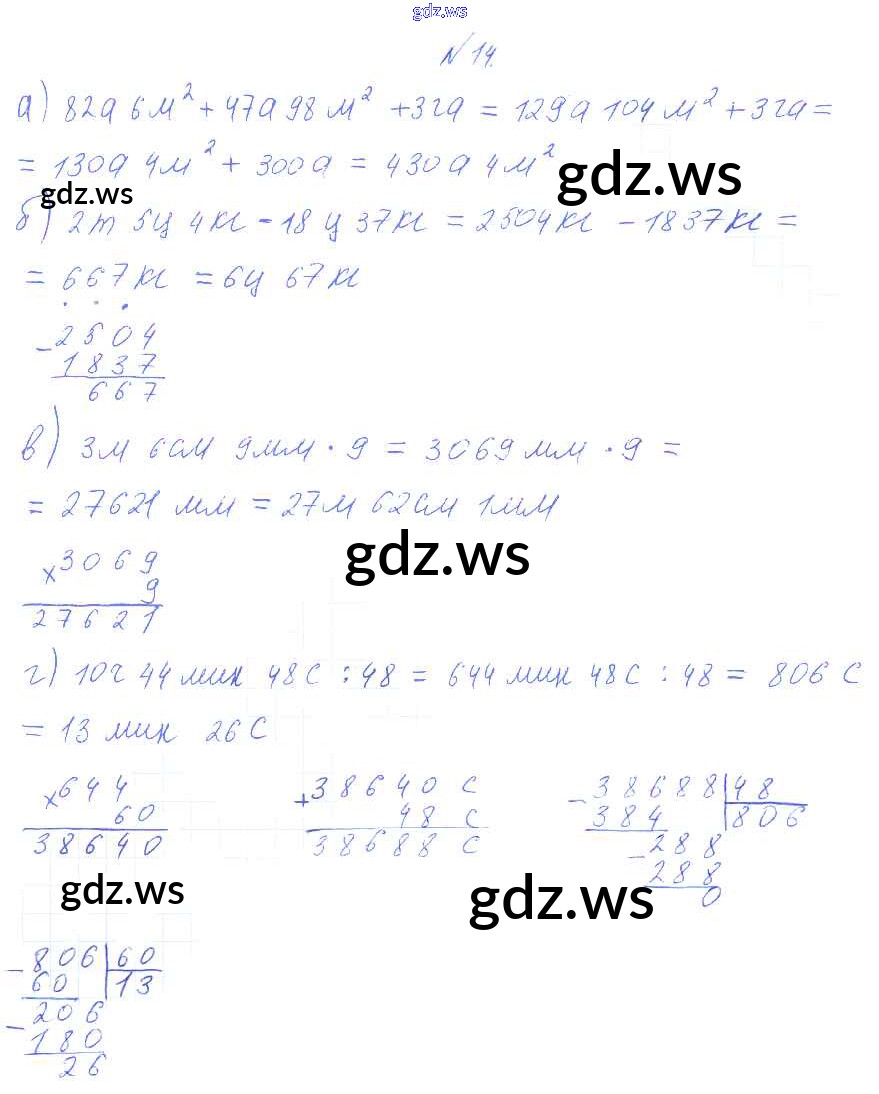 gdz.ws
N 14.
а) 82а 6м² + 47а 98м² + 3га = 129а 104м² + 3га =
= 130а 4м² + 300а = 430а 4м²
gdz.ws
gdz.ws
б) 2т 5ц 4кг - 18ц 37кг = 2504кг - 1837кг =
= 667кг = 6ц 67кг
- 2504
1837
667
в) 3м 6см 9мм · 9 = 3069мм · 9 =
= 27621 мм = 27м 62см 1мм
gdz.ws
x 3069
9
27621
г) 10ч 44 мин 48с : 48 = 644 мин 48с : 48 = 806 с
= 13 мин 26с
x 644
60
38640
+ 38640 с
48 с
38688 с
- 38688 | 48
384 | 806
- 288
288
0
gdz.ws
gdz.ws
- 806 | 60
60 | 13
- 206
180
26